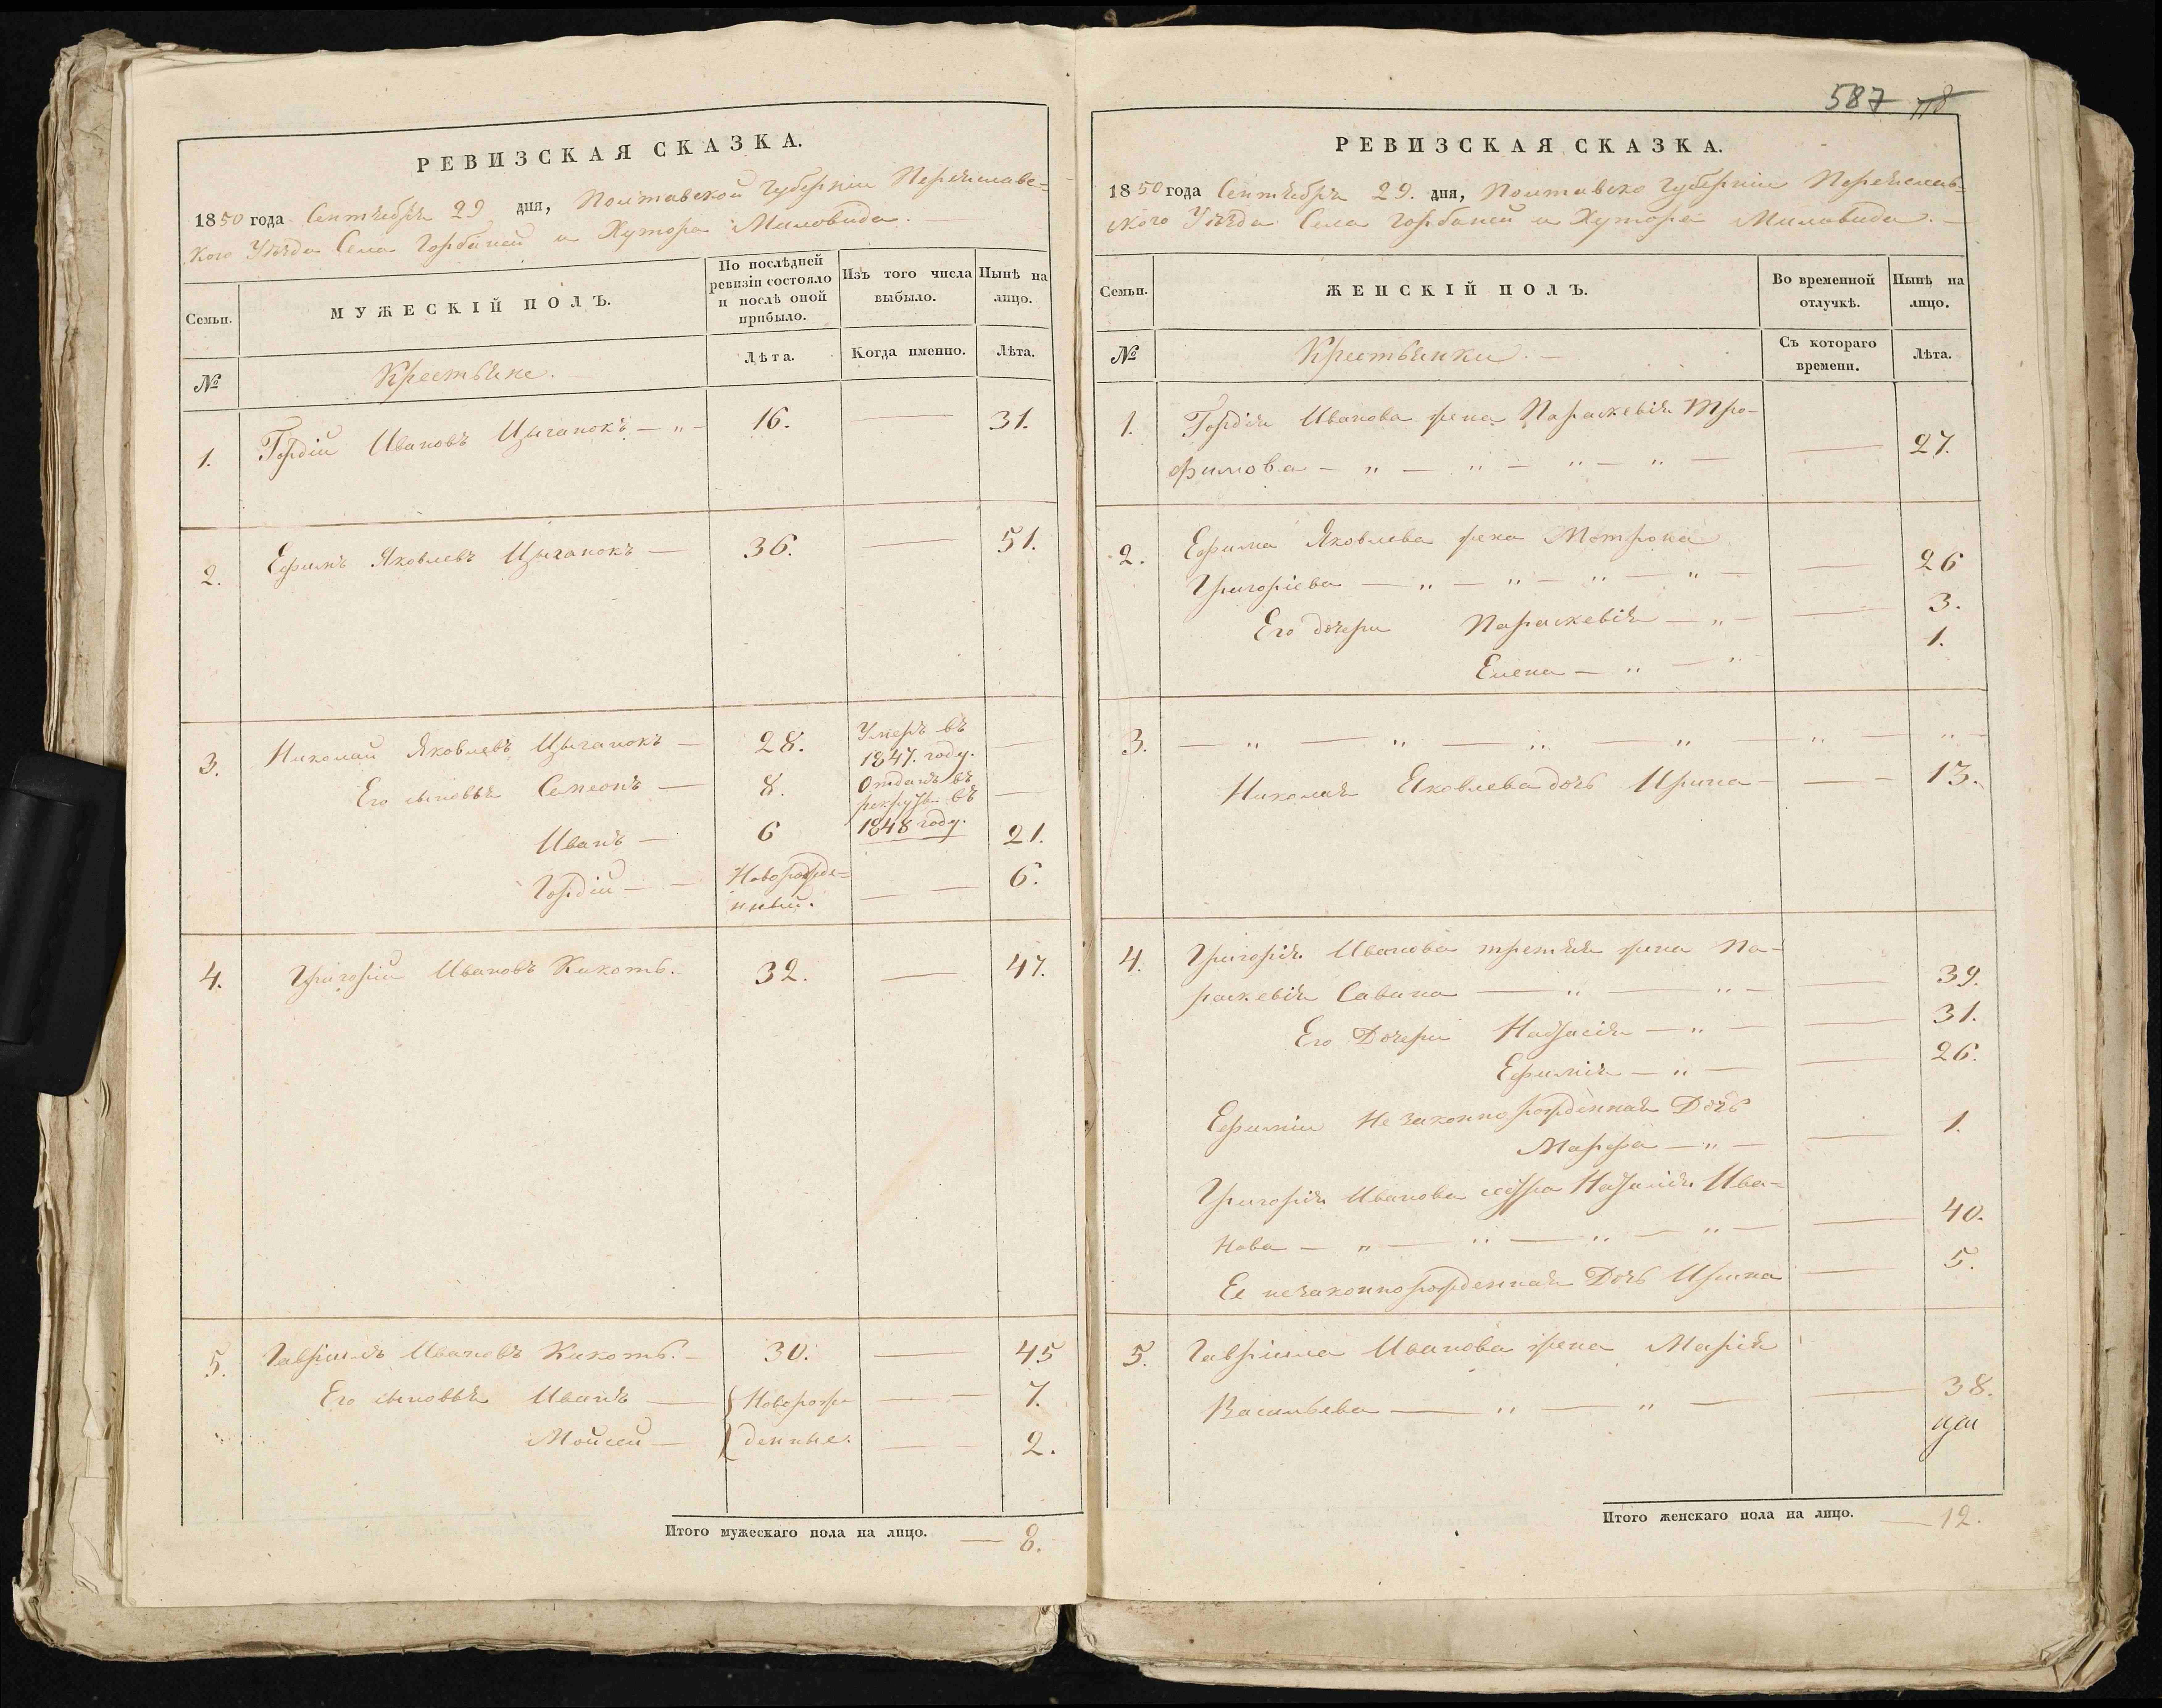 РЕВИЗСКАЯ СКАЗКА.
1850 года Сентября 29 дня, Полтавской Губерніи Переяславс=
кого Уѣзда Села Горбаней и Хутора Миловида.
Семьи. МУЖЕСКІЙ ПОЛЪ. По послѣдней ревизіи состояло и послѣ оной прибыло. Изъ того числа выбыло. Нынѣ на лицо.
№ Крестьяне. Лѣта. Когда именно. Лѣта.
1. Гордій Ивановъ Цыганокъ — „ — 16. — 31.
2. Ефимъ Яковлевъ Цыганокъ — 36. — 51.
3. Николай Яковлевъ Цыганокъ — 28. Умеръ въ 1847. году. —
Его сыновья Семеонъ — 8. Отданъ въ рекруты въ 1848 году. —
Иванъ — 6 21.
Гордій — — Новорожде=нный. — — 6.
4. Григорій Ивановъ Кикоть. 32. — 47.
5. Гавріилъ Ивановъ Кикоть. — 30. — 45
Его сыновья Иванъ — { Новорож — — 7.
Мойсей — { денные. — — 2.
Итого мужескаго пола на лицо. — 8.
587 718
РЕВИЗСКАЯ СКАЗКА.
1850 года Сентября 29. дня, Полтавско Губерніи Переяслав-
ского Уѣзда Села Горбаней и Хутора Миловида. —
Семьи. ЖЕНСКІЙ ПОЛЪ. Во временной отлучкѣ. Нынѣ на лицо.
№ Крестьянки. — Съ котораго времени. Лѣта.
1. Гордія Иванова жена Параскевія Тро-
фимова — „ — „ — „ — „ — — 27.
2. Ефима Яковлева жена Мотрона
Григоріева — „ — „ — „ — „ — — 26
Его дочери Параскевія — „ — — 3.
Елена — „ — „ 1.
3. — „ — „ — „ „ — „ — „ —
Николая Яковлева дочь Ирина — — — 13.
4. Григорія Иванова третяя жена Па-
раскевія Савина — „ — „ — — 39.
Его Дочери Настасія — „ — — 31.
Ефимія — „ — — 26.
Ефиміи Незаконнорожденная Дочь
Марфа — „ — — 1.
Григорія Иванова сестра Наталія Ива=
нова — „ — „ — „ — „ — — 40.
Ее незаконнорожденная Дочь Ирина — 5.
5. Гавріила Иванова жена Марія
Васильева — „ — „ — — 38.
Итого женскаго пола на лицо. — 12.